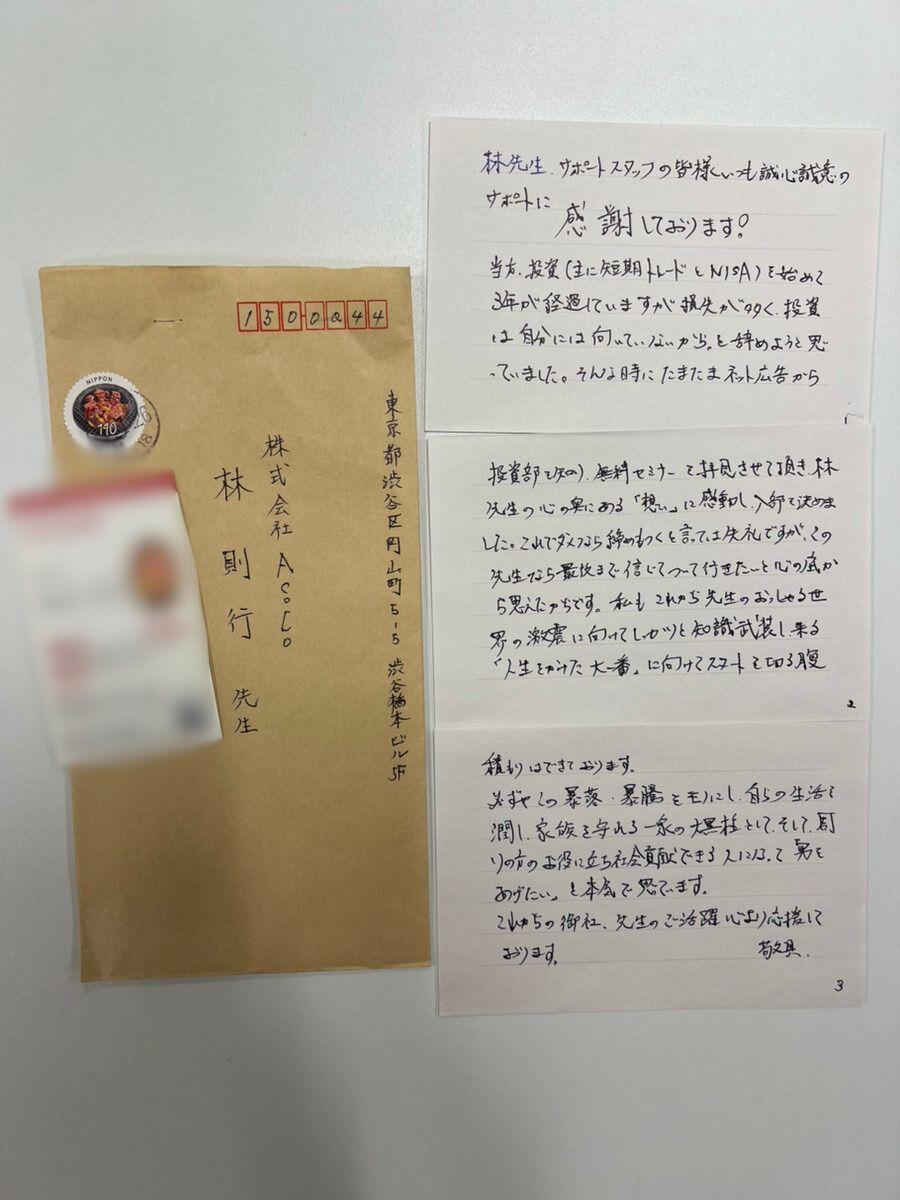 1500044
東京都渋谷区円山町5-5 渋谷橋本ビル5F
株式会社ASoCo
林則行 先生
NIPPON
110
林先生、サポートスタッフの皆様、いつも誠心誠意の
サポートに
感謝しております!
当方、投資(主に短期トレードとNISA)を始めて
3年が経過していますが損失が多く、投資
は自分には向いていないから。と辞めようと思
っていました。そんな時にたまたまネット広告から
1
投資部を知り、無料セミナーを拝見させて頂き、林
先生の心の奥にある「想い」に感動し、入部を決めま
した。これでダメなら諦めもつくと言っては失礼ですが、この
先生なら最後まで信じてついて行きたいと心の底か
ら思えたからです。私もこれから先生のおっしゃる世
界の激震に向けてしっかりと知識武装し来る
「人生をかけた大一番」に向けてスタートを切る腹
2
積もりはできております。
必ずやこの暴落・暴騰をモノにし、自らの生活を
潤し、家族を守れる一家の大黒柱として、そして、周
りの方のお役に立ち社会貢献できる人になって「男を
あげたい」と本気で思ています。
これからの御社、先生のご活躍心より応援して
おります。 敬具.
3